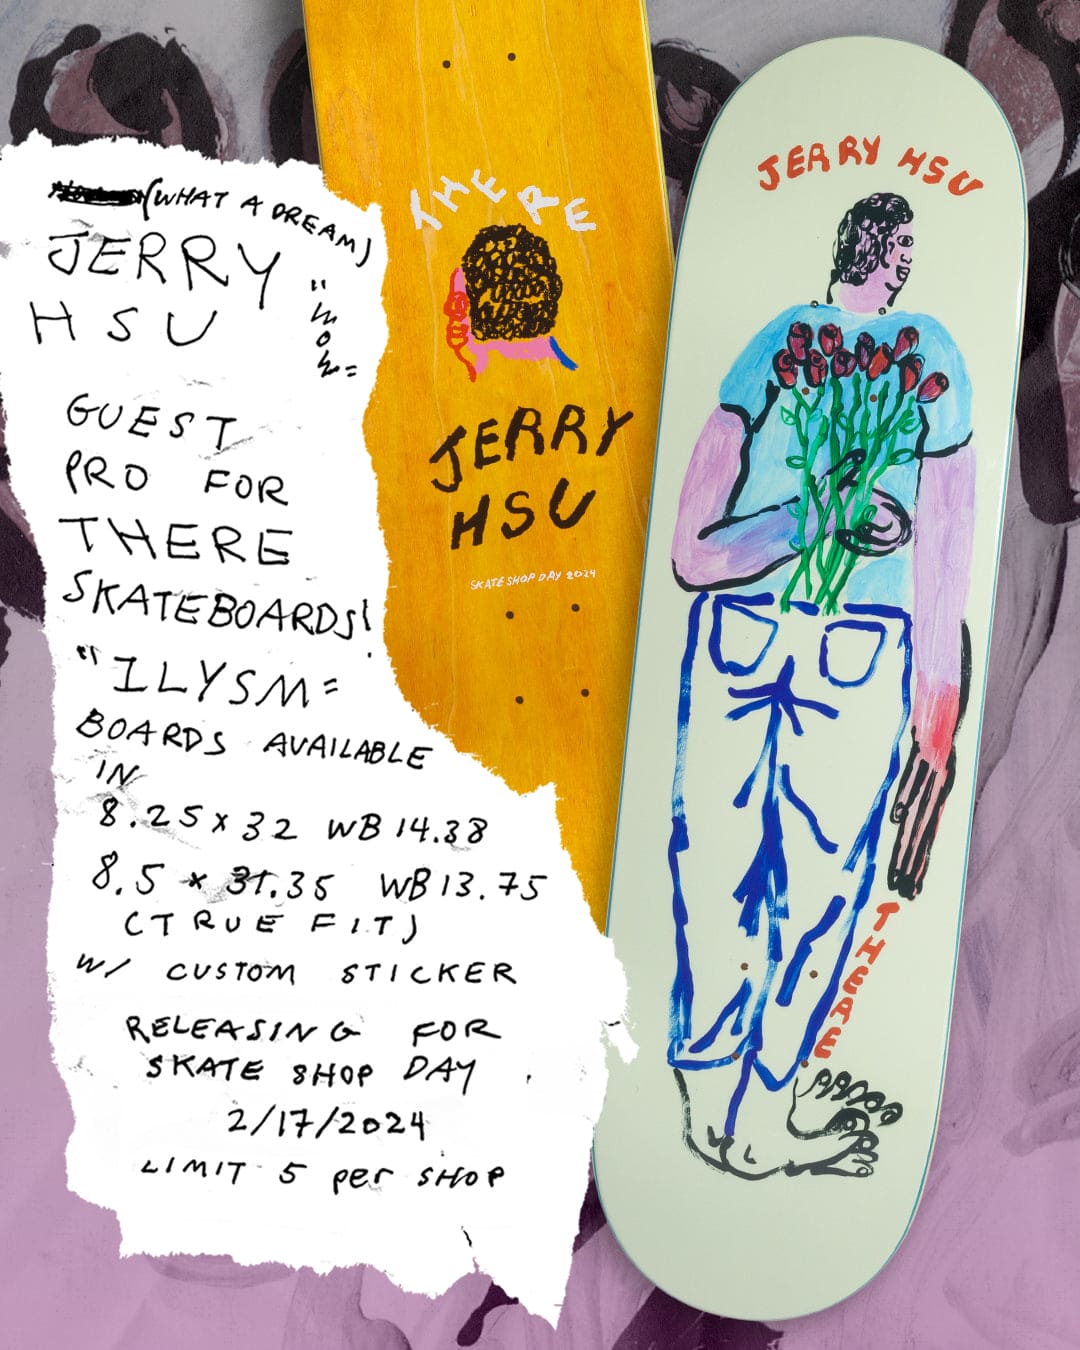 (WHAT A DREAM)
JERRY
HSU
"WOW"
GUEST
PRO FOR
THERE
SKATEBOARDS!
"ILYSM"
BOARDS AVAILABLE
IN
8.25 x 32 WB 14.38
8.5 x 31.35 WB 13.75
(TRUE FIT)
W/ CUSTOM STICKER
RELEASING FOR
SKATE SHOP DAY
2/17/2024
LIMIT 5 per SHOP
THERE
JERRY
HSU
SKATE SHOP DAY 2024
JERRY HSU
THERE